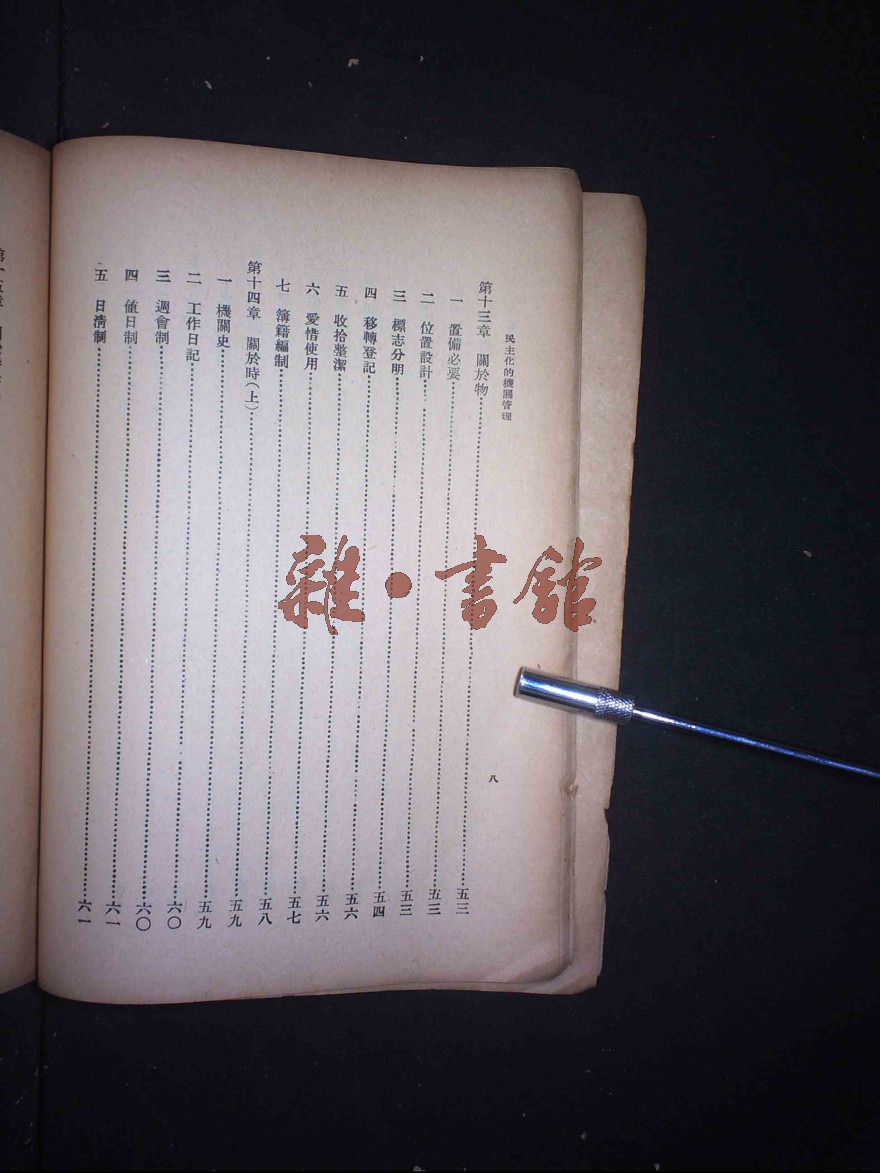 民主化的機關管理
八
第十三章　關於物……五三
一　置備必要……五三
二　位置設計……五三
三　標志分明……五四
四　移轉登記……五六
五　收拾整潔……五六
六　愛惜使用……五七
七　簿籍編制……五八
第十四章　關於時(上)……五九
一　機關史……五九
二　工作日記……六〇
三　週會制……六〇
四　值日制……六一
五　日清制……六一
雜·書館